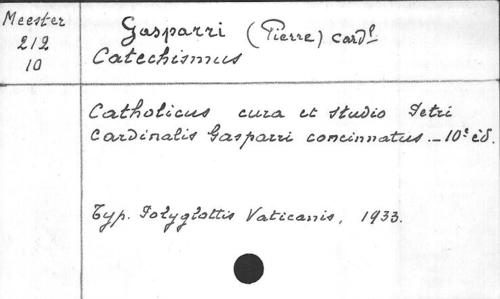 Meester
212
10
Gasparri (Pierre) cardl.
Catechismus
Catholicus cura et studio Petri
Cardinalis Gasparri concinnatus. - 10e éd.
Typ. Polyglottis Vaticanis, 1933.